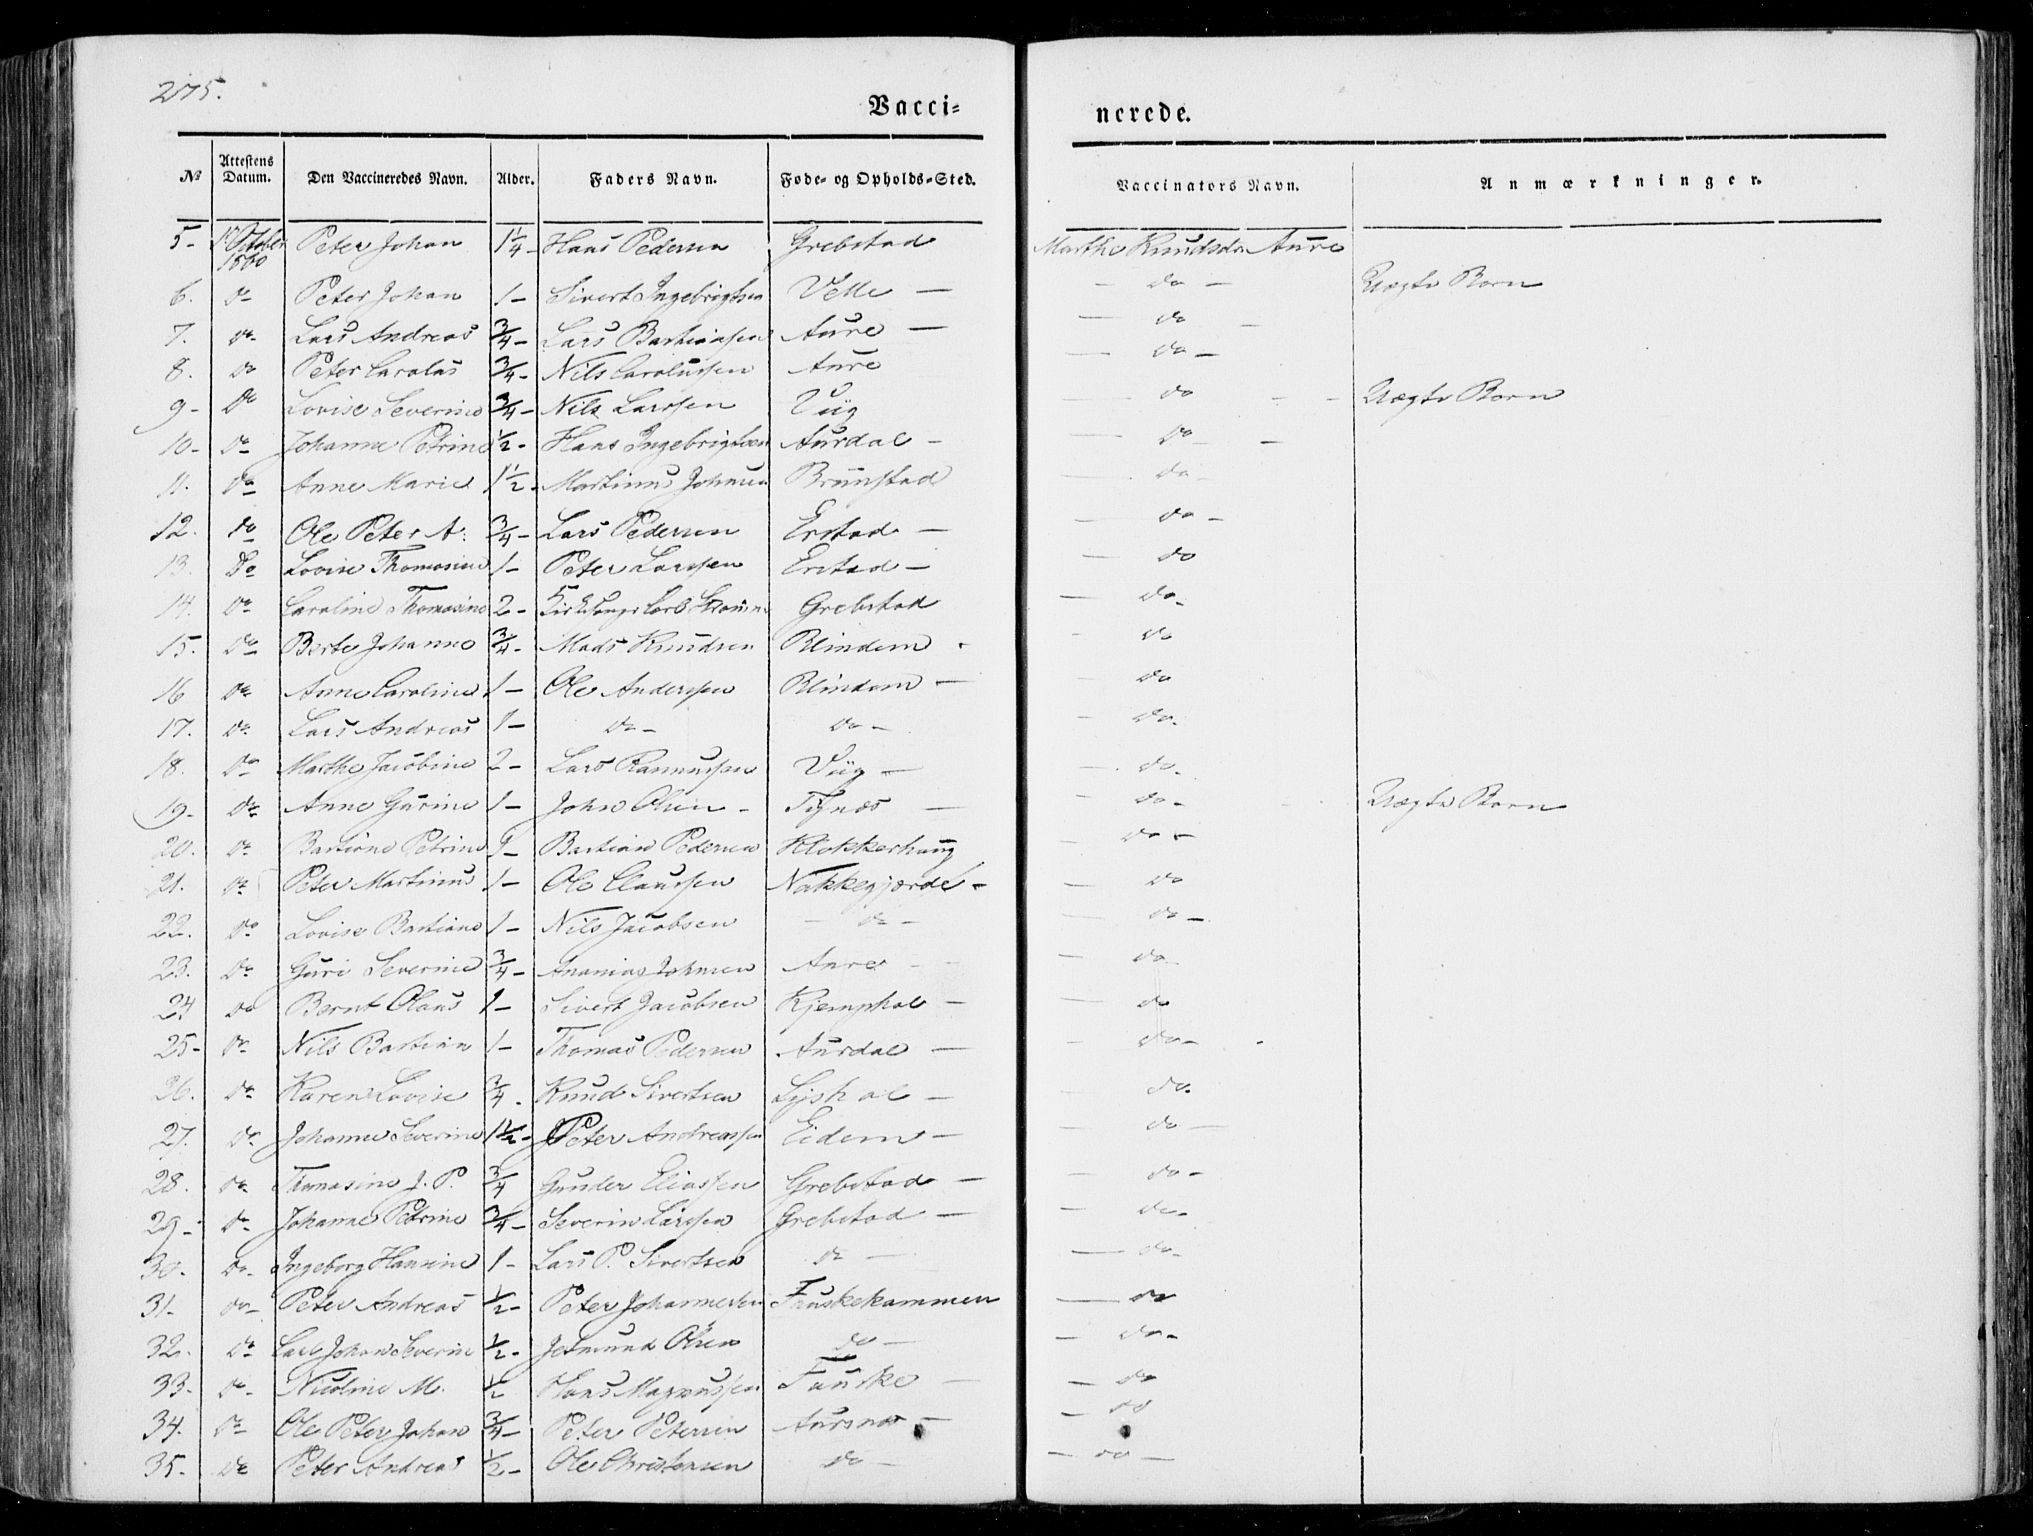 275.
Vacci= nerede.
№ Attestens Datum. Den Vaccineredes Navn. Alder. Faders Navn. Føde= og Opholds=Sted. Vaccinators Navn. Anmærkninger.
5- October 1860 Peter Johan 1 1/4 - Hans Pedersen Grebstad Marthe Knudsdr Aure
6. do Peter Johan 1 - Sivert Ingebrigtsen Velle — — do — Uægte Barn
7. do- Lars Andreas 3/4 - Lars Bastiansen Aure — — do —
8. do Peter Carolus 3/4 - Nils Carolussen Aure — do —
9- do Lovise Severine 3/4 - Nils Larssen Viig — do - - Uægte Barn
10- do Johanne Petrine 1/2 - Hans Ingebrigtsen Aurdal - — do —
11. do Anne Marie 1 1/2 - Martinus Johnsen Brunstad — do -
12. do Ole Peter A. 3/4 - Lars Pedersen Erstad — — do —
13. do Lovise Thomasine 1 - Peter Larssen Erstad — — do
14. do Caroline Thomasine 2 - Kirkesanger Carl Grebstad — do-
15. do Berte Johanne 3/4 - Mads Knudsen Blindem - — do
16 do Anne Caroline 1 — Ole Anderssen Blindem — — do
17. do. Lars Andreas 1 - do - do - — do.
18. do Marthe Jacobine 2 - Lars Rasmussen Viig — — do-
19- do Anne Gurine 1 - John Olsen - Tynæs — — do - Uægte Barn
20. do Bastiane Petrine 1 - Bastian Pedersen Klokkerhaug — do —
21. do Peter Martinus 1 - Ole Claussen Nakkegjerdet - — do
22. do Lovise Bastiane 1 - Nils Jacobsen — do - — do —
23. do Guri Severine 3/4 - Ananias Johnsen Aure - — do
24 do Bernt Olaus 1 - Sivert Jacobsen Kjemphol — — do
25- do Nils Bastian 1 - Thomas Pedersen Aurdal — — do -
26. do. Karen Lovise 3/4 - Knud Sivertsen Lyshol — — do.
27. do Johanne Severine 1 1/2 - Peter Andreassen Eidem — — do —
28. do Thomasine J. P. 3/4 Gunder Eliassen Grebstad — — do —
29- do Johanne Petrine 3/4 - Severin Larssen Grebstad — — do-
30- do- Ingeborg Hansine 1 - Lars P. Sivertsen do — — do-
31- do- Peter Andreas 1/2 - Peter Johannessen Fauskekammen — do
32. do Carl Johan Severin 1/2 - Jetmund Olsen do — — do-
33- do- Nicoline M. 1/2 Hans Magnussen Fauske — — do
34. do Ole Peter Johan 3/4 - Peter Petersen Aursnæs — — do
35- do Peter Andreas 1/2 - Ole Christensen do — — do —